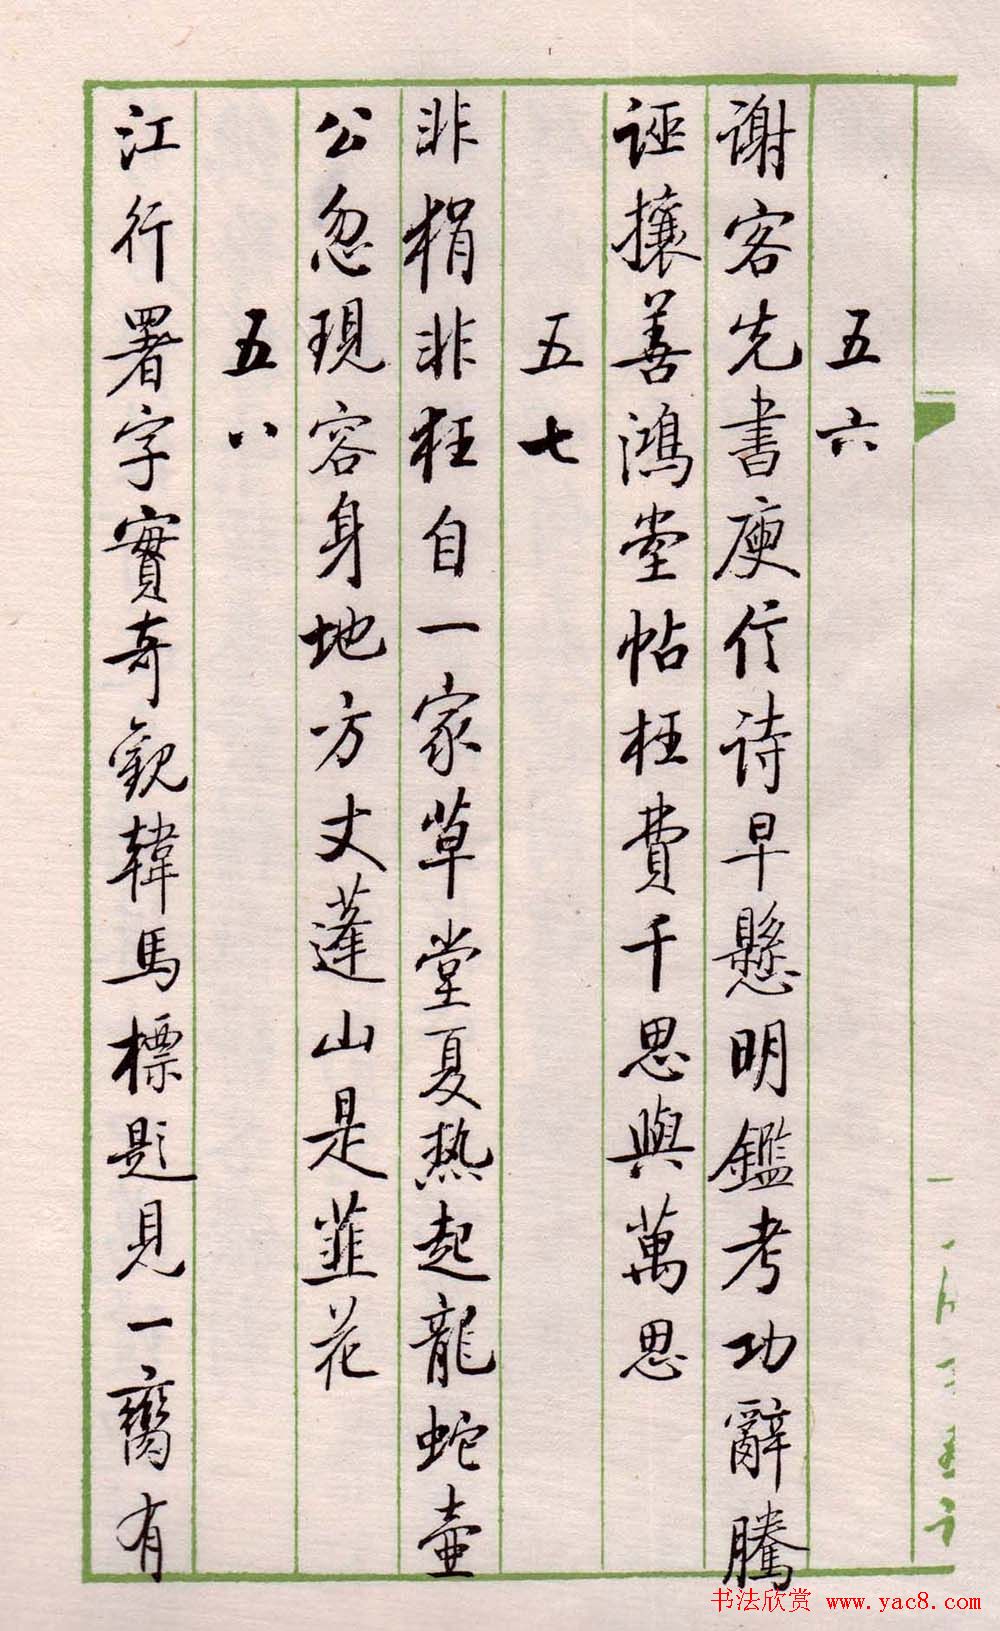 五六
谢客先書庾信诗早懸明鑑考功辭騰
诬攘善鴻堂帖枉費千思與萬思
五七
非狷非狂自一家草堂夏热起龍蛇壷
公忽現容身地方丈蓬山是韮花
五八
江行署字實奇觀韓馬標題見一臠有
书法欣赏 www.yac8.com